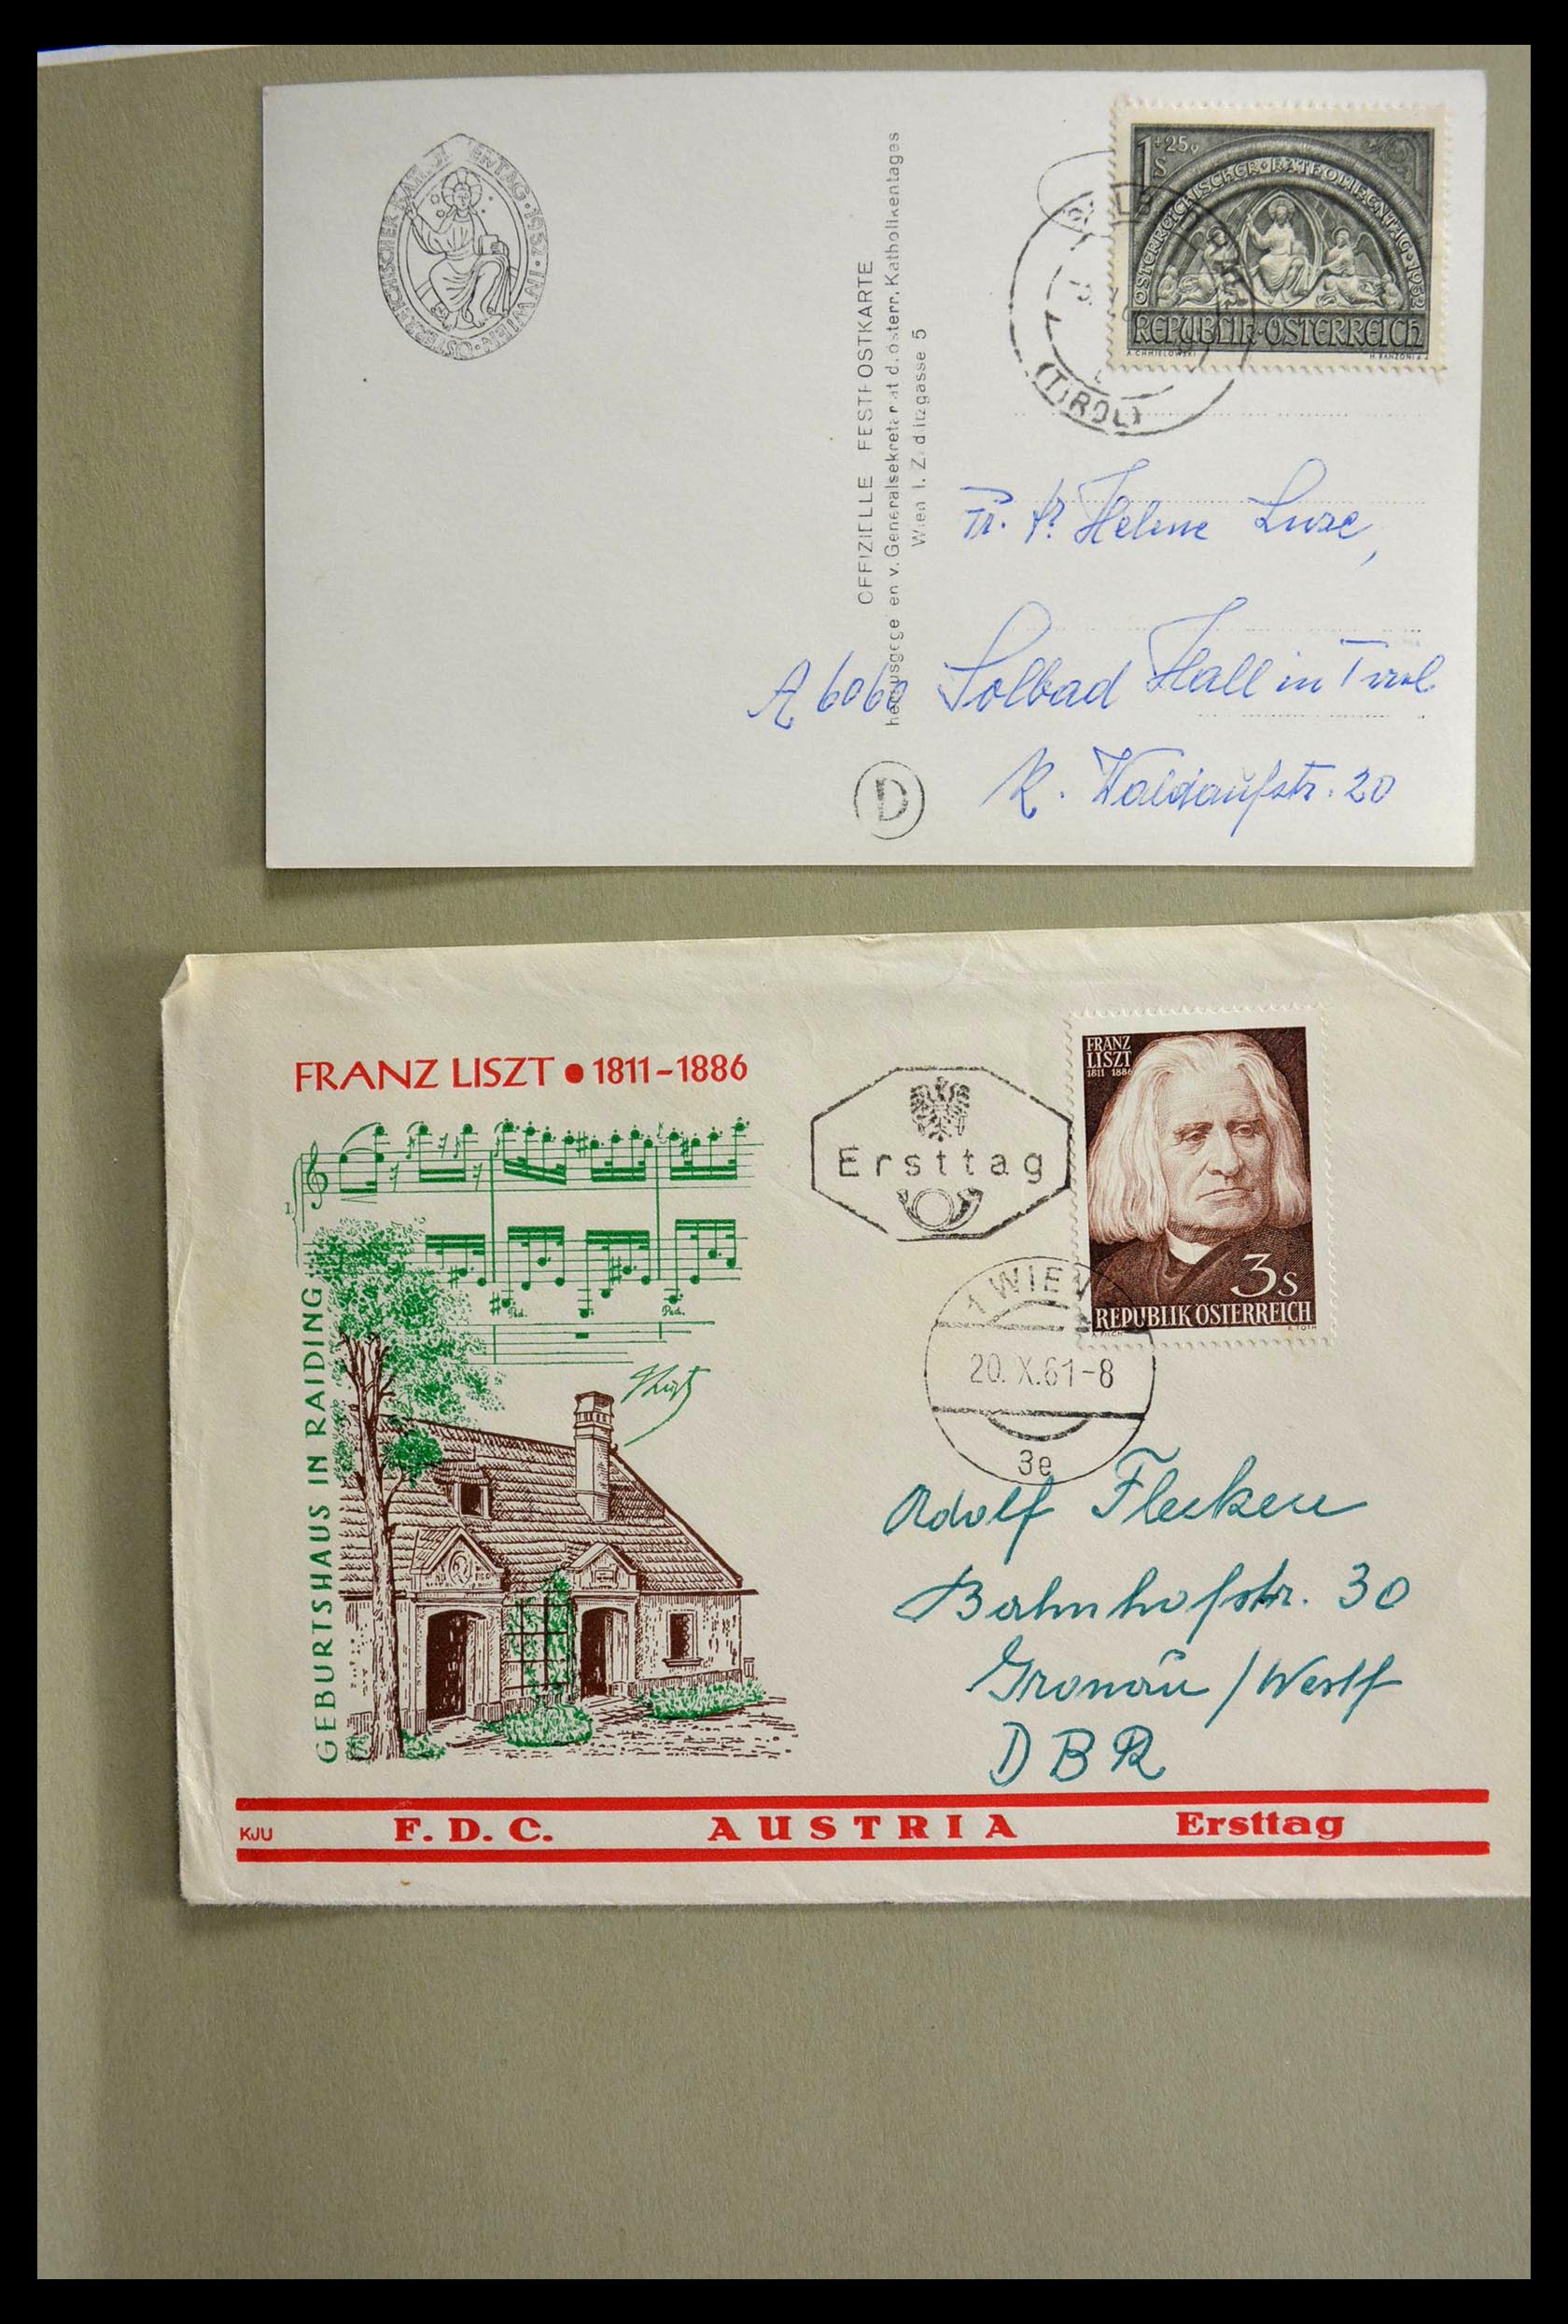 ÖSTERREICHISCHER KATHOLIKENTAG · 1952 · IN WIEN ·
OFFIZIELLE FESTPOSTKARTE
herausgegeben v. Generalsekretariat d. österr. Katholikentages
Wien I. Zedlitzgasse 5
1 S +25g
ÖSTERREICHISCHER · KATHOLIKENTAG · 1952
REPUBLIK · ÖSTERREICH
A. CHMIELOWSKI
H. RANZONI d.J.
(TIROL)
Fr. Helene
A 6060 Solbad Hall in Tirol
K. Waldaufstr. 20
D
FRANZ LISZT • 1811-1886
GEBURTSHAUS IN RAIDING
Ped.
Ped.
Ersttag
FRANZ
LISZT
1811 1886
3 S
REPUBLIK ÖSTERREICH
A. PILCH
K. TOTH
1 WIEN
20. X. 61-8
3e
Adolf Flecken
Bahnhofstr. 30
Gronau / Westf
DBR
KJU F. D. C. AUSTRIA Ersttag